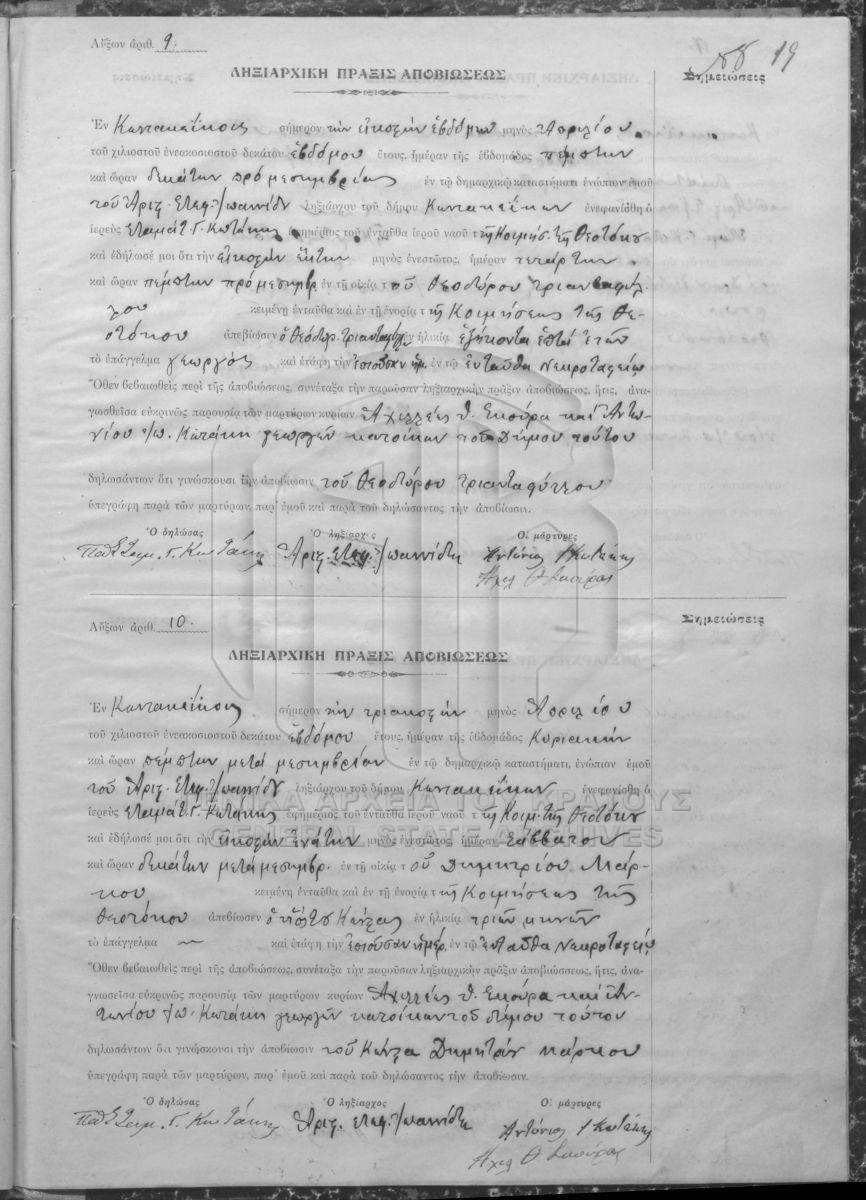 Αὔξων ἀριθ. 9.
19
ΛΗΞΙΑΡΧΙΚΗ ΠΡΑΞΙΣ ΑΠΟΒΙΩΣΕΩΣ
Σημειώσεις
Ἐν σήμερον τὴν εἰκοστὴν ἑβδόμην μηνὸς Ἀπριλίου
τοῦ χιλιοστοῦ ἐνεακοσιοστοῦ δεκάτου ἑβδόμου ἔτους, ἡμέραν τῆς ἑβδομάδος πέμπτην
καὶ ὥραν δεκάτην πρὸ μεσημβρίας ἐν τῷ δημαρχικῷ καταστήματι ἐνώπιον ἐμοῦ
τοῦ Ἀριστ. Στεφ. Ἰωαννίδη ληξιάρχου τοῦ δήμου ἐνεφανίσθη ὁ
ἱερεὺς Σταμάτ. Γ. Κωτάκης ἐφημέριος τοῦ ἐνταῦθα ἱεροῦ ναοῦ τῆς Κοιμήσ. τῆς Θεοτόκου
καὶ ἐδήλωσέ μοι ὅτι τὴν εἰκοστὴν ἕκτην μηνὸς ἐνεστῶτος, ἡμέραν τετάρτην
καὶ ὥραν πέμπτην πρὸ μεσημβρ. ἐν τῇ οἰκίᾳ τοῦ Θεοδώρου Τριανταφύλ-
λου κειμένῃ ἐνταῦθα καὶ ἐν τῇ ἐνορίᾳ τῆς Κοιμήσεως τῆς Θε-
οτόκου ἀπεβίωσεν ὁ Θεόδωρ. Τριανταφύλ. ἐν ἡλικίᾳ ἑξήκοντα ἑπτὰ ἐτῶν
τὸ ἐπάγγελμα γεωργὸς καὶ ἐτάφη τὴν ἐπιοῦσαν ἡμ. ἐν τῷ ἐνταῦθα Νεκροταφείῳ
Ὅθεν βεβαιωθεὶς περὶ τῆς ἀποβιώσεως, συνέταξα τὴν παροῦσαν ληξιαρχικὴν πρᾶξιν ἀποβιώσεως, ἥτις, ἀνα-
γνωσθεῖσα εὐκρινῶς παρουσίᾳ τῶν μαρτύρων κυρίων Ἀχιλλέως Θ. Σκούρα καὶ Ἀντω-
νίου Ἰω. Κωτάκη γεωργῶν κατοίκων τοῦ Δήμου τούτου
δηλωσάντων ὅτι γινώσκουσι τὴν ἀποβίωσιν τοῦ Θεοδώρου Τριανταφύλλου
ὑπεγράφη παρὰ τῶν μαρτύρων, παρ' ἐμοῦ καὶ παρὰ τοῦ δηλώσαντος τὴν ἀποβίωσιν.
Ὁ δηλώσας Ὁ ληξίαρχος Οἱ μάρτυρες
Παπᾶ Σταμ. Γ. Κωτάκης Ἀριστ. Στεφ. Ἰωαννίδης Ἀντώνιος Ι Κωτάκης
Ἀχιλ Θ Σκούρας
Αὔξων ἀριθ. 10.
Σημειώσεις
ΛΗΞΙΑΡΧΙΚΗ ΠΡΑΞΙΣ ΑΠΟΒΙΩΣΕΩΣ
Ἐν σήμερον τὴν τριακοστὴν μηνὸς Ἀπριλίου
τοῦ χιλιοστοῦ ἐνεακοσιοστοῦ δεκάτου ἑβδόμου ἔτους, ἡμέραν τῆς ἑβδομάδος Κυριακὴν
καὶ ὥραν πέμπτην μετὰ μεσημβρίαν ἐν τῷ δημαρχικῷ καταστήματι, ἐνώπιον ἐμοῦ
τοῦ Ἀριστ. Στεφ. Ἰωαννίδη ληξιάρχου τοῦ δήμου ἐνεφανίσθη ὁ
ἱερεὺς Σταμάτ. Γ. Κωτάκης ἐφημέριος τοῦ ἐνταῦθα ἱεροῦ ναοῦ τῆς Κοιμ. τῆς Θεοτόκου
ΓΕΝΙΚΑ ΑΡΧΕΙΑ ΤΟΥ ΚΡΑΤΟΥΣ
GENERAL STATE ARCHIVES
καὶ ἐδήλωσέ μοι ὅτι τὴν εἰκοστὴν ἐνάτην μηνὸς ἐνεστῶτος, ἡμέραν Σάββατον
καὶ ὥραν δεκάτην μετὰ μεσημβρ. ἐν τῇ οἰκίᾳ τοῦ Δημητρίου Μάρ-
κου κειμένῃ ἐνταῦθα καὶ ἐν τῇ ἐνορίᾳ τῆς Κοιμήσεως τῆς
Θεοτόκου ἀπεβίωσεν ἐν ἡλικίᾳ τριῶν μηνῶν
τὸ ἐπάγγελμα — καὶ ἐτάφη τὴν ἐπιοῦσαν ἡμέρ. ἐν τῷ ἐνταῦθα Νεκροταφείῳ
Ὅθεν βεβαιωθεὶς περὶ τῆς ἀποβιώσεως, συνέταξα τὴν παροῦσαν ληξιαρχικὴν πρᾶξιν ἀποβιώσεως, ἥτις, ἀνα-
γνωσεῖσα εὐκρινῶς παρουσίᾳ τῶν μαρτύρων κυρίων Ἀχιλλέως Θ. Σκούρα καὶ Ἀν-
τωνίου Ἰω. Κωτάκη γεωργῶν κατοίκων τοῦ δήμου τούτου
δηλωσάντων ὅτι γινώσκουσι τὴν ἀποβίωσιν τοῦ Δημητρίου Μάρκου
ὑπεγράφη παρὰ τῶν μαρτύρων, παρ' ἐμοῦ καὶ παρὰ τοῦ δηλώσαντος τὴν ἀποβίωσιν.
Ὁ δηλώσας Ὁ ληξίαρχος Οἱ μάρτυρες
Παπᾶ Σταμ. Γ. Κωτάκης Ἀριστ. Στεφ. Ἰωαννίδης Ἀντώνιος Ι Κωτάκης
Ἀχιλ Θ Σκούρας